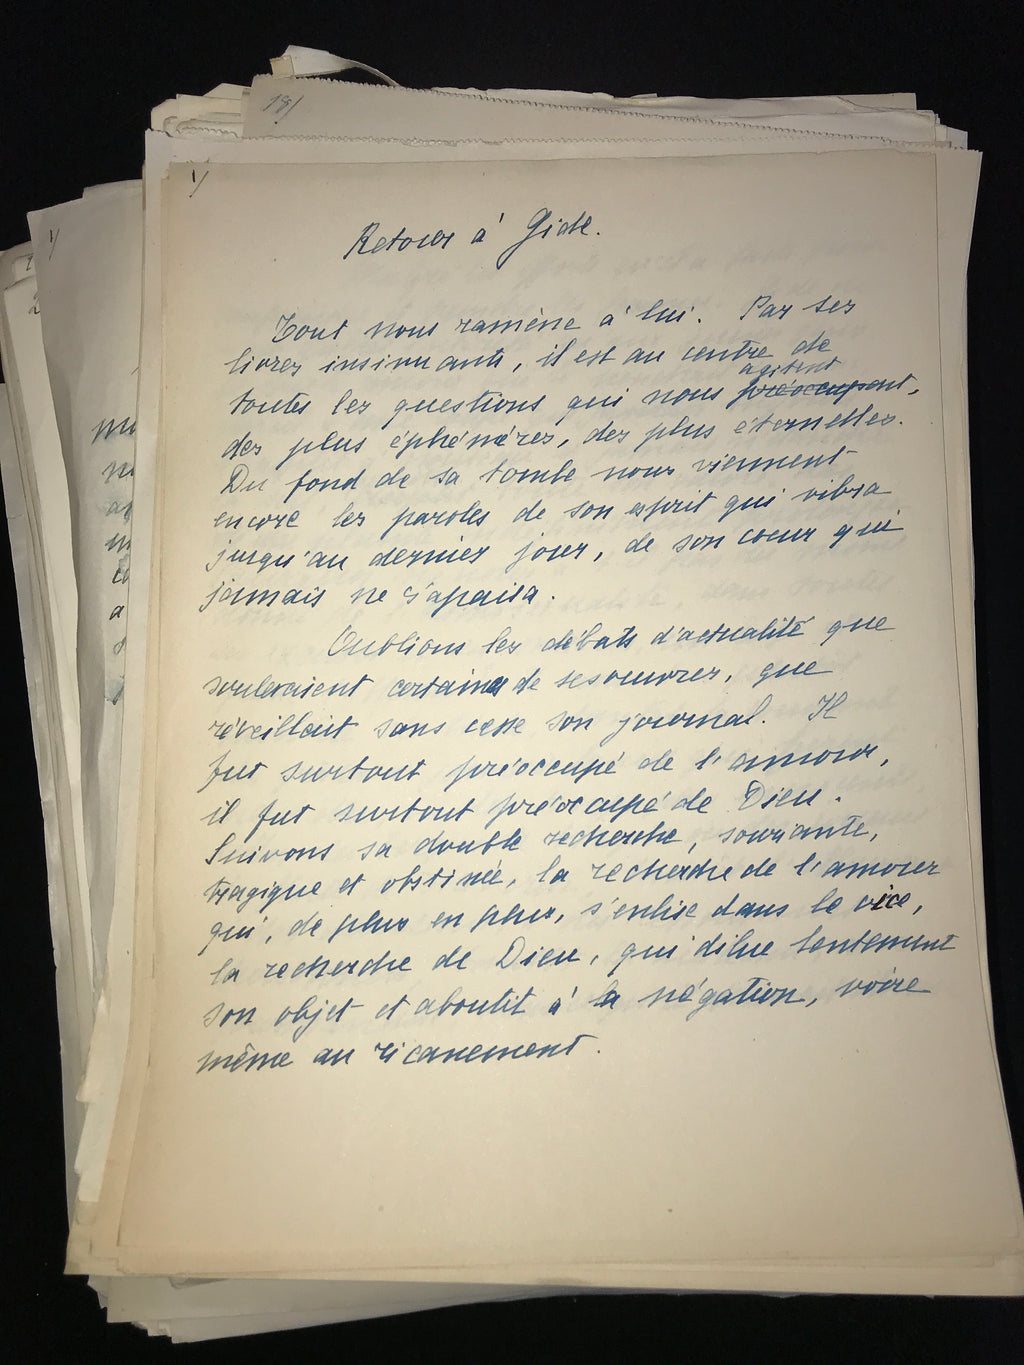 18/
1/
Retour à Gide.
Tout nous ramène à lui. Par ses
livres insinuants, il est au centre de
agitent
toutes les questions qui nous préoccupent,
des plus éphémères, des plus éternelles.
Du fond de sa tombe nous viennent
encore les paroles de son esprit qui vibra
jusqu'au dernier jour, de son coeur qui
jamais ne s'apaisa.
Oublions les débats d'actualité que
soulevaient certaines de ses oeuvres, que
réveillait sans cesse son journal. Il
fut surtout préoccupé de l'amour,
il fut surtout préoccupé de Dieu.
Suivons sa double recherche, souriante,
tragique et obstinée, la recherche de l'amour
qui, de plus en plus, s'enlise dans le vice,
la recherche de Dieu, qui dilue lentement
son objet et aboutit à la négation, voire
même au ricanement.